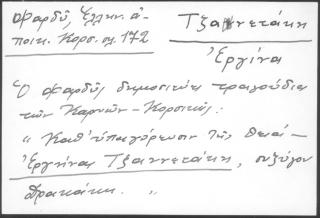 Φαρδύς, Ἑλλην. ἀ-
ποικ. Κορσ. σελ. 172
Τζαννετάκη
Ἐργίνα
Ὁ Φαρδύς δημοσιεύει τραγούδια
τῶν Καργιών - Κορσικῆς:
"Καθ' ὑπαγόρευσιν τῆς Θειά-
Ἐργήνας Τζαννετάκη, συζύγου
Δρακάκη. "